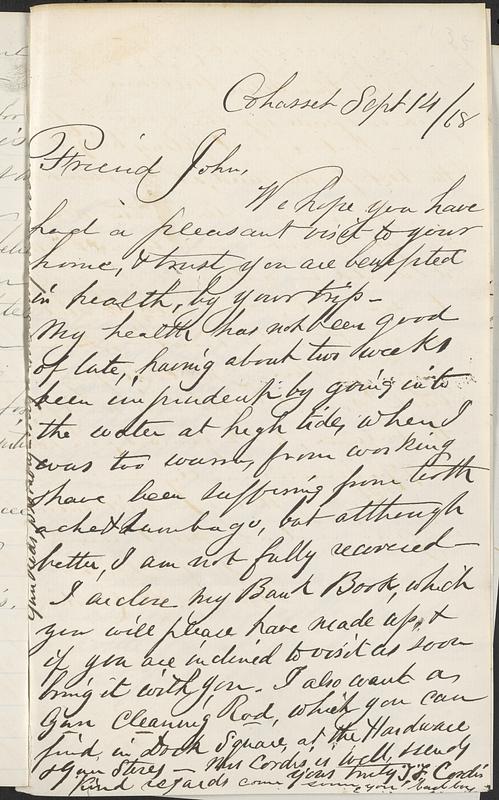 Cohasset Sept 14/68
Friend John,
We hope you have
had a pleasant visit to your
home, & trust you are benefited
in health, by your trip -
My health has not been good
of late, having about two weeks
been imprudent by going into
the water at high tide, when I
was too warm, from working
have been suffering from tooth
ache & Lumbago, but although
better, I am not fully recovered -
I enclose my Bank Book, which
you will please have made up, &
if you are inclined to visit us soon
bring it with you. I also want a
Gun Cleaning Rod, which you can
find in Dock Square, at the Hardware
& Gun Stores - Mrs Cordis is well, sends
kind regards
Yours truly T F Cordis
come soon